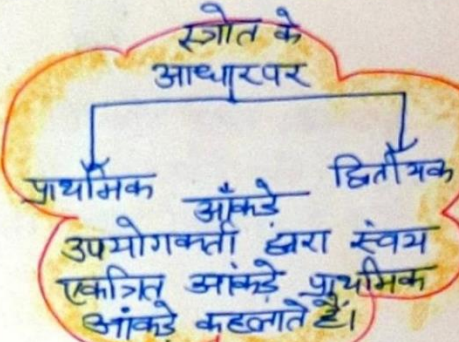 स्त्रोत के
आधारपर
प्राथमिक द्वितीयक
आँकडे
उपयोगकर्ता द्वारा स्वंय
एकत्रित आंकड़े प्राथमिक
आंकडे कहलाते हैं।